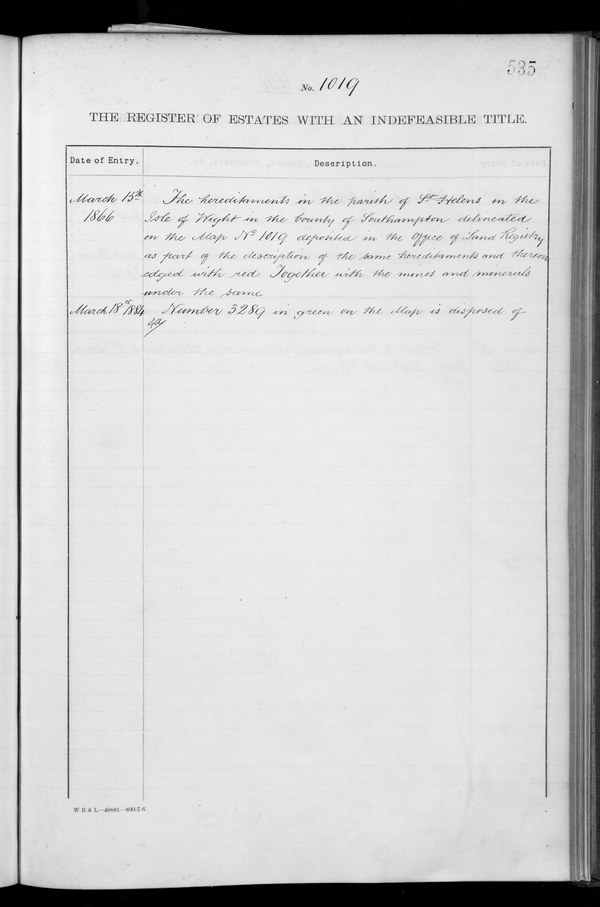 535
No. 1019
THE REGISTER OF ESTATES WITH AN INDEFEASIBLE TITLE.
Date of Entry. Description.
March 15th The hereditaments in the parish of St Helens in the
1866 Isle of Wight in the County of Southampton delineated
on the Map No 1019 deposited in the Office of Land Registry
as part of the description of the same hereditaments and thereon
edged with red Together with the mines and minerals
under the same
March 18th 1884 Number 3289 in green on the Map is disposed of
W B & L